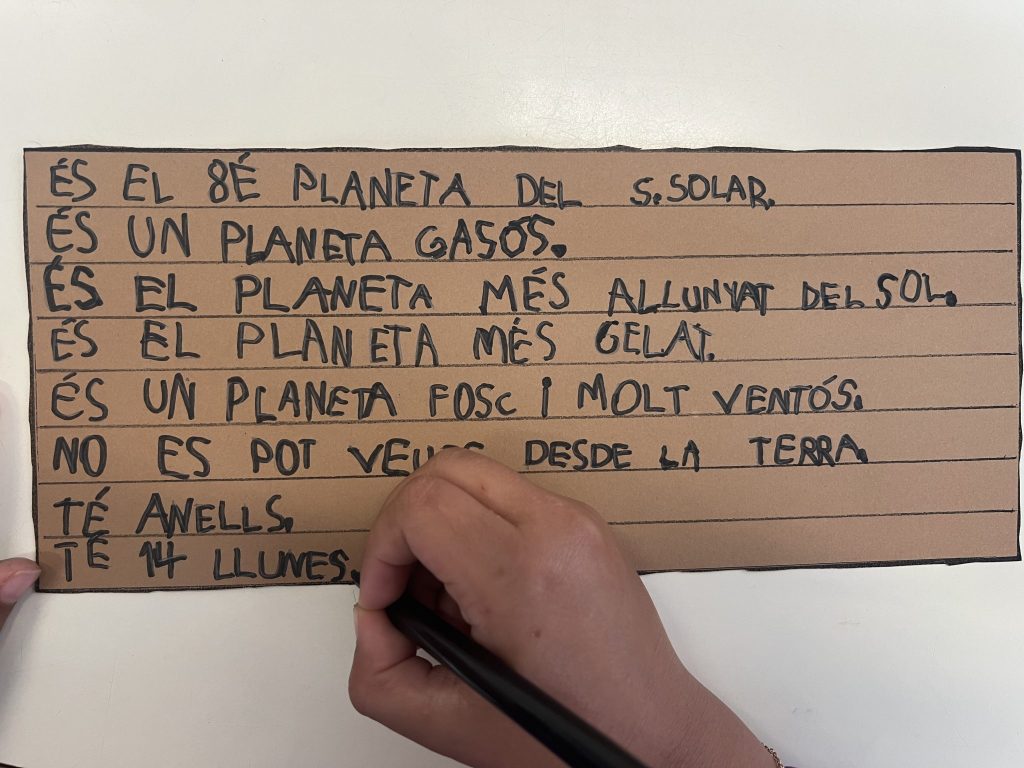 ÉS EL 8É PLANETA DEL S.SOLAR.
ÉS UN PLANETA GASÓS.
ÉS EL PLANETA MÉS ALLUNYAT DEL SOL.
ÉS EL PLANETA MÉS GELAT.
ÉS UN PLANETA FOSC I MOLT VENTÓS.
NO ES POT DESDE LA TERRA.
TÉ ANELLS.
TÉ 14 LLUNES.